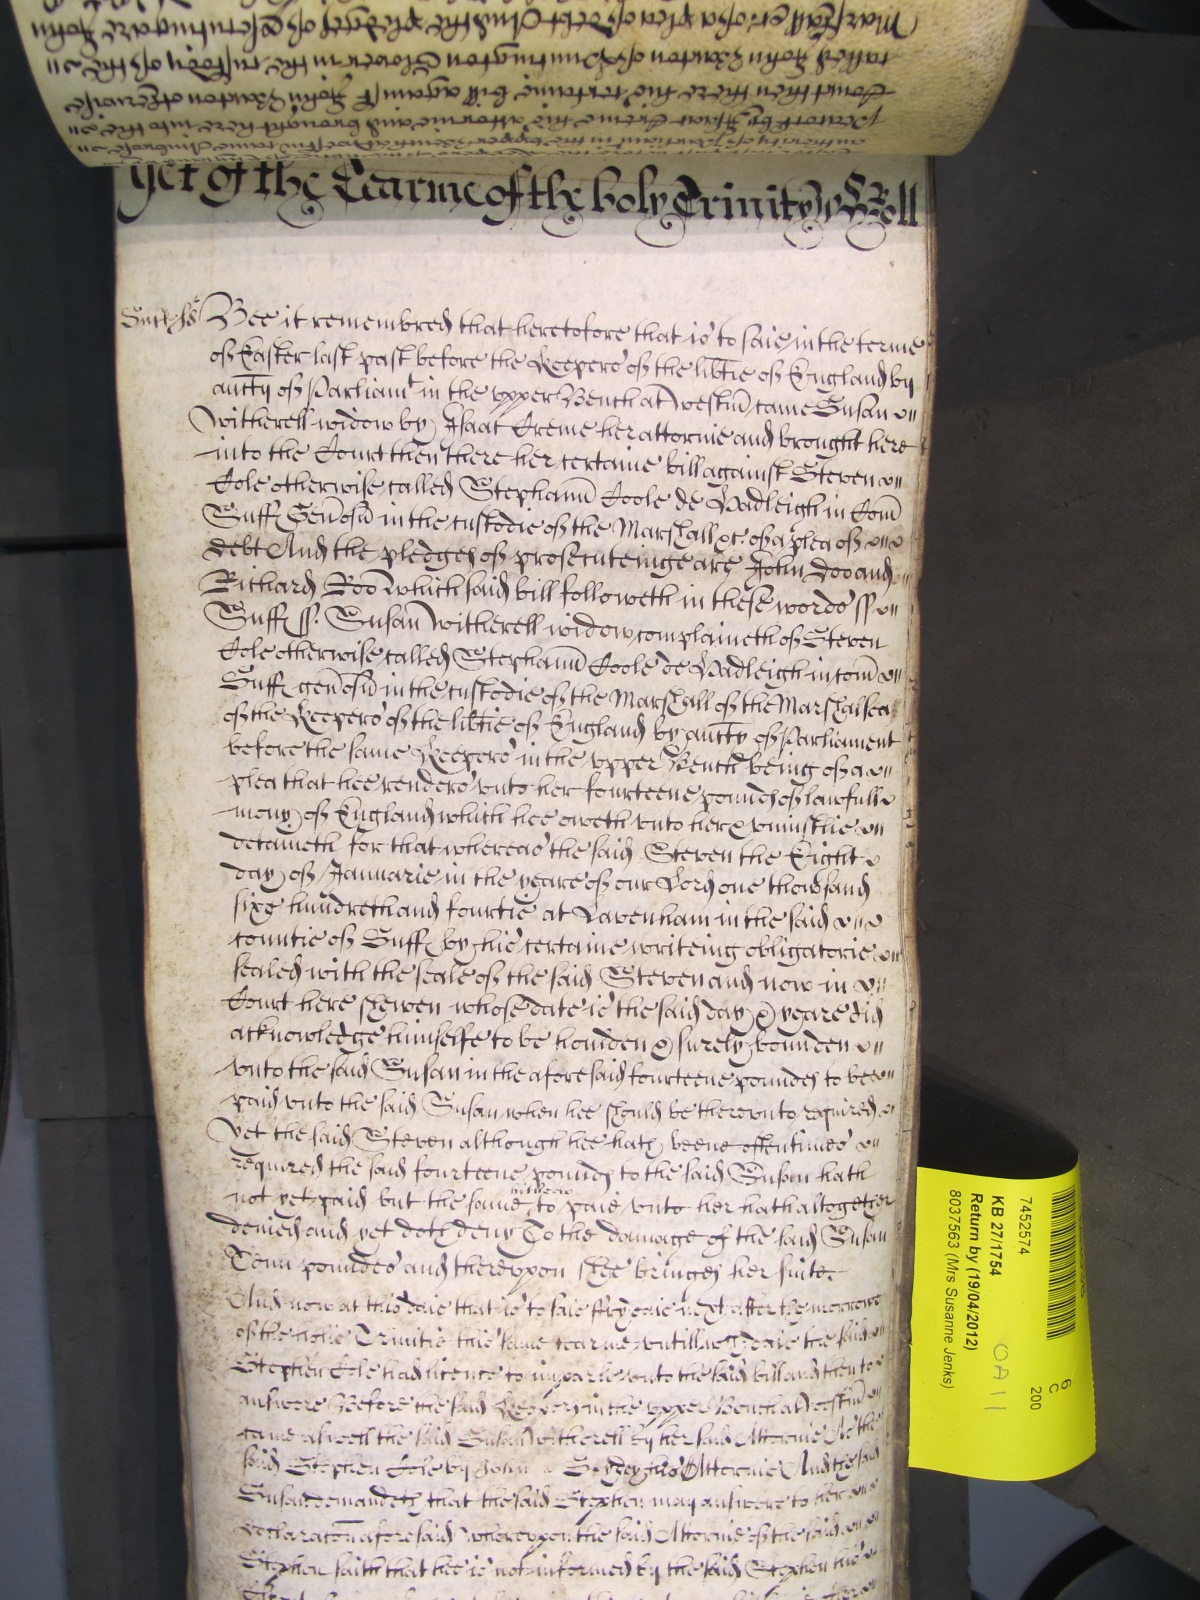 Marshall &c of a plea of debt And the pledges of prosecuting are John
called John Sexton of Clothier in the custody of the
Court then there his certaine bill against John Sexton otherwise
by Isaac Creme his attornie and brought here into the
Yet of the Tearme of the holy Trinity Roll
Suff ss Bee it remembred that heretofore that is to saie in the terme
of Easter last past before the Keepers of the lib̃tie of England by
autħty of Parliamt in the vpper Bench at Westm̃ came Susan
Witherell widow by Isaac Creme her attornie and brought here
into the Court then there her certaine bill against Steven
Cole otherwise called Stephanũ Coole de Hadleigh in Com̃
Suff Gen̄osũ in the custodie of the Marshall &c. of a plea of
debt And the pledges of prosecuteinge are John Doo and
Richard Roo Which said bill followeth in these words ss
Suff ss. Susan Witherell widow complaineth of Steven
Cole otherwise called Stephanũ Coole de Hadleigh in com̃
Suff gen̄osũ in the custodie of the Marshall of the Marshalsea
of the Keepers of the lib̃tie of England by autħty of Parliament
before the same Keepers in the vpper Bench being of a
plea that hee renders vnto her fourteene pounds of lawfull
mony of England which hee oweth vnto her & vniustlie
detaineth for that whereas the said Steven the Eight
day of Januarie in the yeare of our Lord one thowsand
sixe hundreth and fourtie at Lavenham in the said
countie of Suff by his certaine writeing obligatorie
sealed with the seale of the said Steven and now in
Court here shewen whose date is the said day & yeare did
acknowledge himselfe to be houlden & surely bounden
vnto the said Susan in the aforesaid fourteene pounds to bee
paid vnto the said Susan when hee should be therevnto required
Yet the said Steven although hee hath beene oftentimes
required the said fourteene pounds to the said Susan hath
not yet paid but the same to paie vnto her hath altogether
denied and yet doth deny To the damage of the said Susan
Tenn pounds and therevpon shee bringes her suite.
And now at this daie that is to saie ffrydaie next after the morrowe
of the holie Trinitie this same tearme vntill wch daie the said
Stephen Cole had licence to imparle vnto the said bill and then to
answere Before the said Keepers in the vpper Bench at Westm̃
came aswell the said Susan Witherell by her said Attornie As the
said Stephen Cole by John his Attornie And the said
Susan demandeth that the said Stephen may answere to her
declaratōn aforesaid wherevpon the said Attornie of the said
Stephen saith that hee is not informed by the said Stephen his
7452574
KB 27/1754
Return by (19/04/2012)
8037563 (Mrs Susanne Jenks)
6
C
200
OA 11